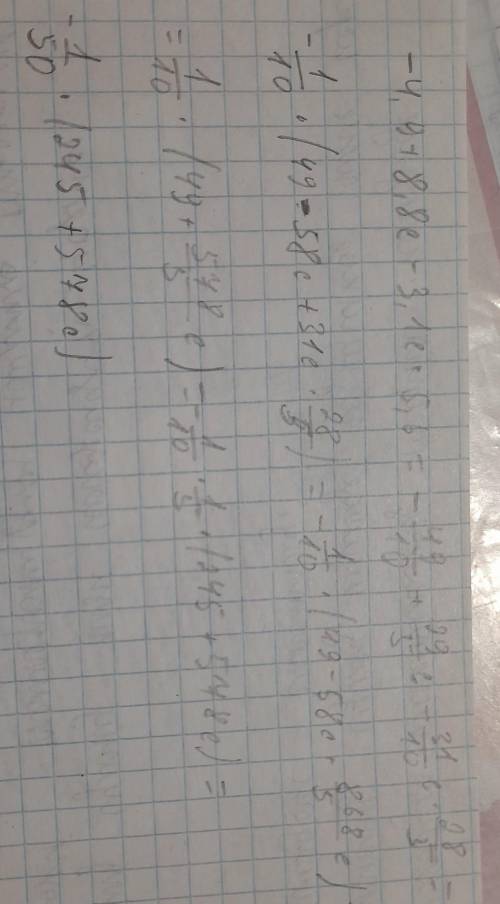 -4,9+8,8c-3,1c·5,6=-49/10+29/5c-31/10c·28/5=
-1/10·(49-58c+31c·28/5)=-1/10·(49-58c+868/5c)
=1/10·(49+578/5c)=-1/10·1/5·(245+578c)=
-1/50·(245+578c)